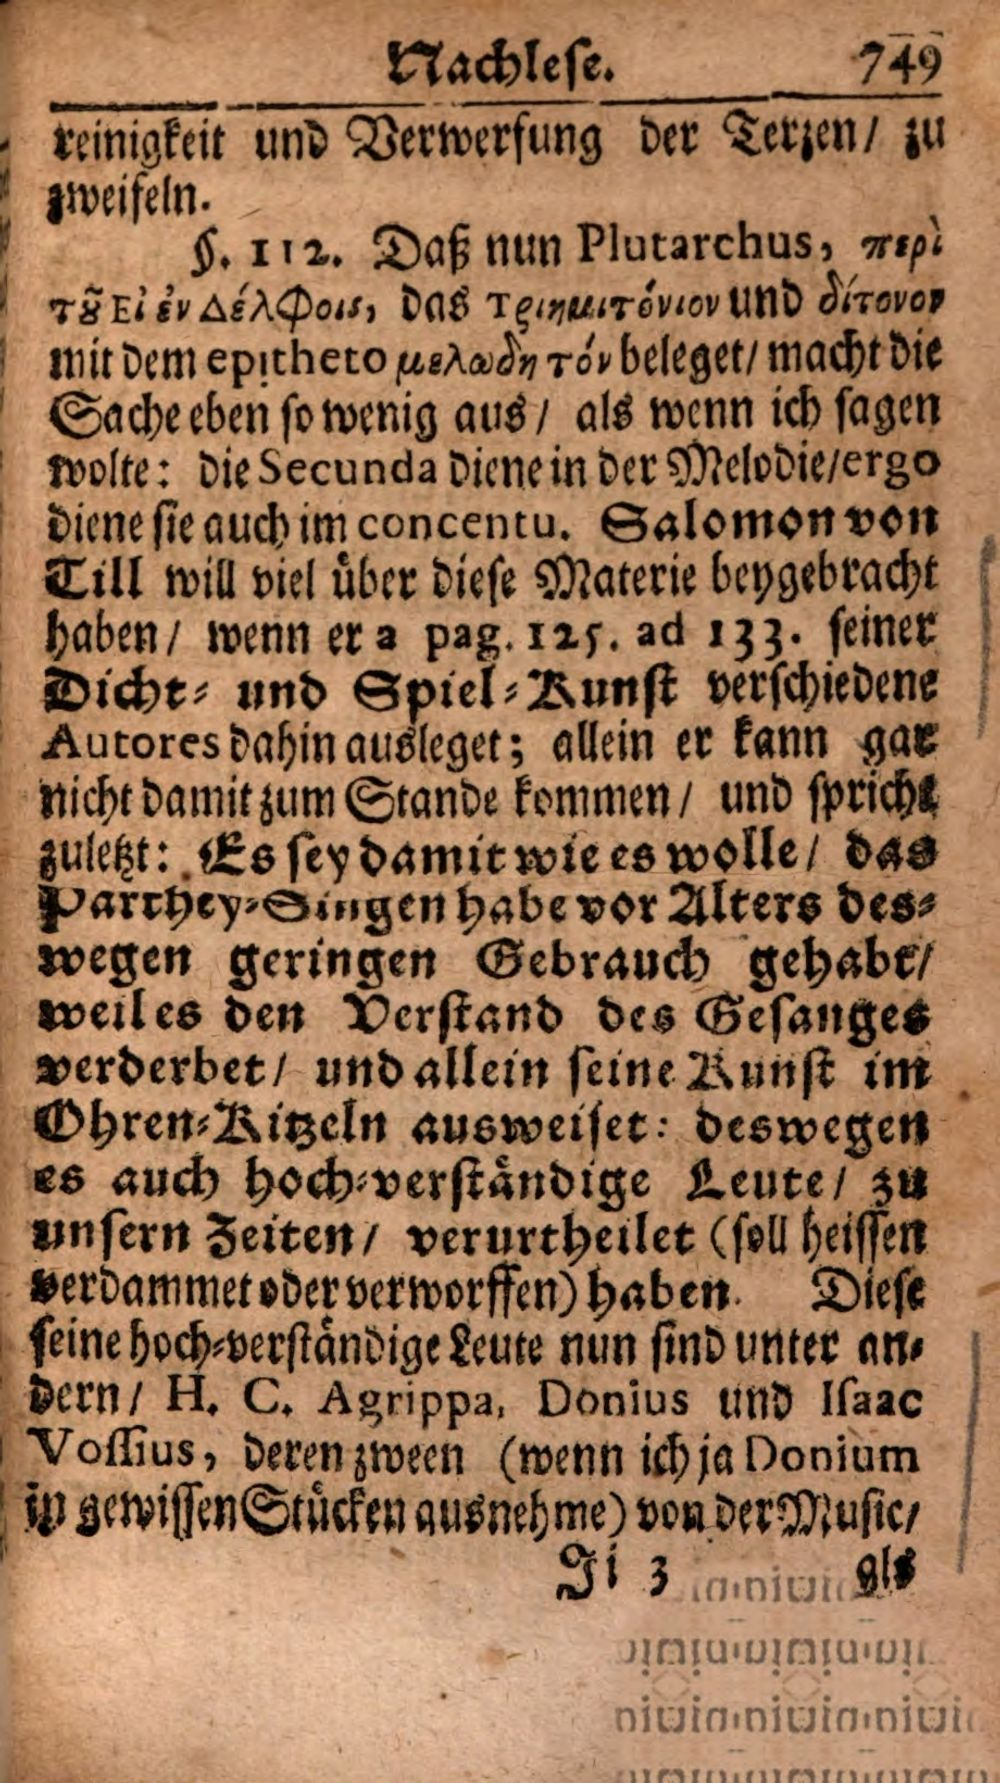 Nachlese. 749
reinigkeit und Verwerfung der Terzen/ zu
zweifeln.
§. 112. Daß nun Plutarchus, περὶ
τȣ͂ Εἰ ἐν Δέλφοις, das τριημιτόνιον und δίτονον
mit dem epitheto μελωδητόν beleget/ macht die
Sache eben so wenig aus/ als wenn ich sagen
wolte: die Secunda diene in der Melodie/ergo
diene sie auch im concentu. Salomon von
Till will viel über diese Materie beygebracht
haben/ wenn er a pag. 125. ad 133. seiner
Dicht- und Spiel-Kunst verschiedene
Autores dahin ausleget; allein er kann gar
nicht damit zum Stande kommen/ und spricht
zuletzt: Es sey damit wie es wolle/ das
Parthey-Singen habe vor Alters des-
wegen geringen Gebrauch gehabt/
weil es den Verstand des Gesanges
verderbet/ und allein seine Kunst im
Ohren-Kitzeln ausweiset: deswegen
es auch hoch-verständige Leute/ zu
unsern Zeiten/ verurtheilet (soll heissen
verdammet oder verworffen) haben. Diese
seine hoch-verständige Leute nun sind unter an-
dern/ H. C. Agrippa, Donius und Isaac
Vossius, deren zween (wenn ich ja Donium
in gewissen Stücken ausnehme) von der Music/
Ji 3 als